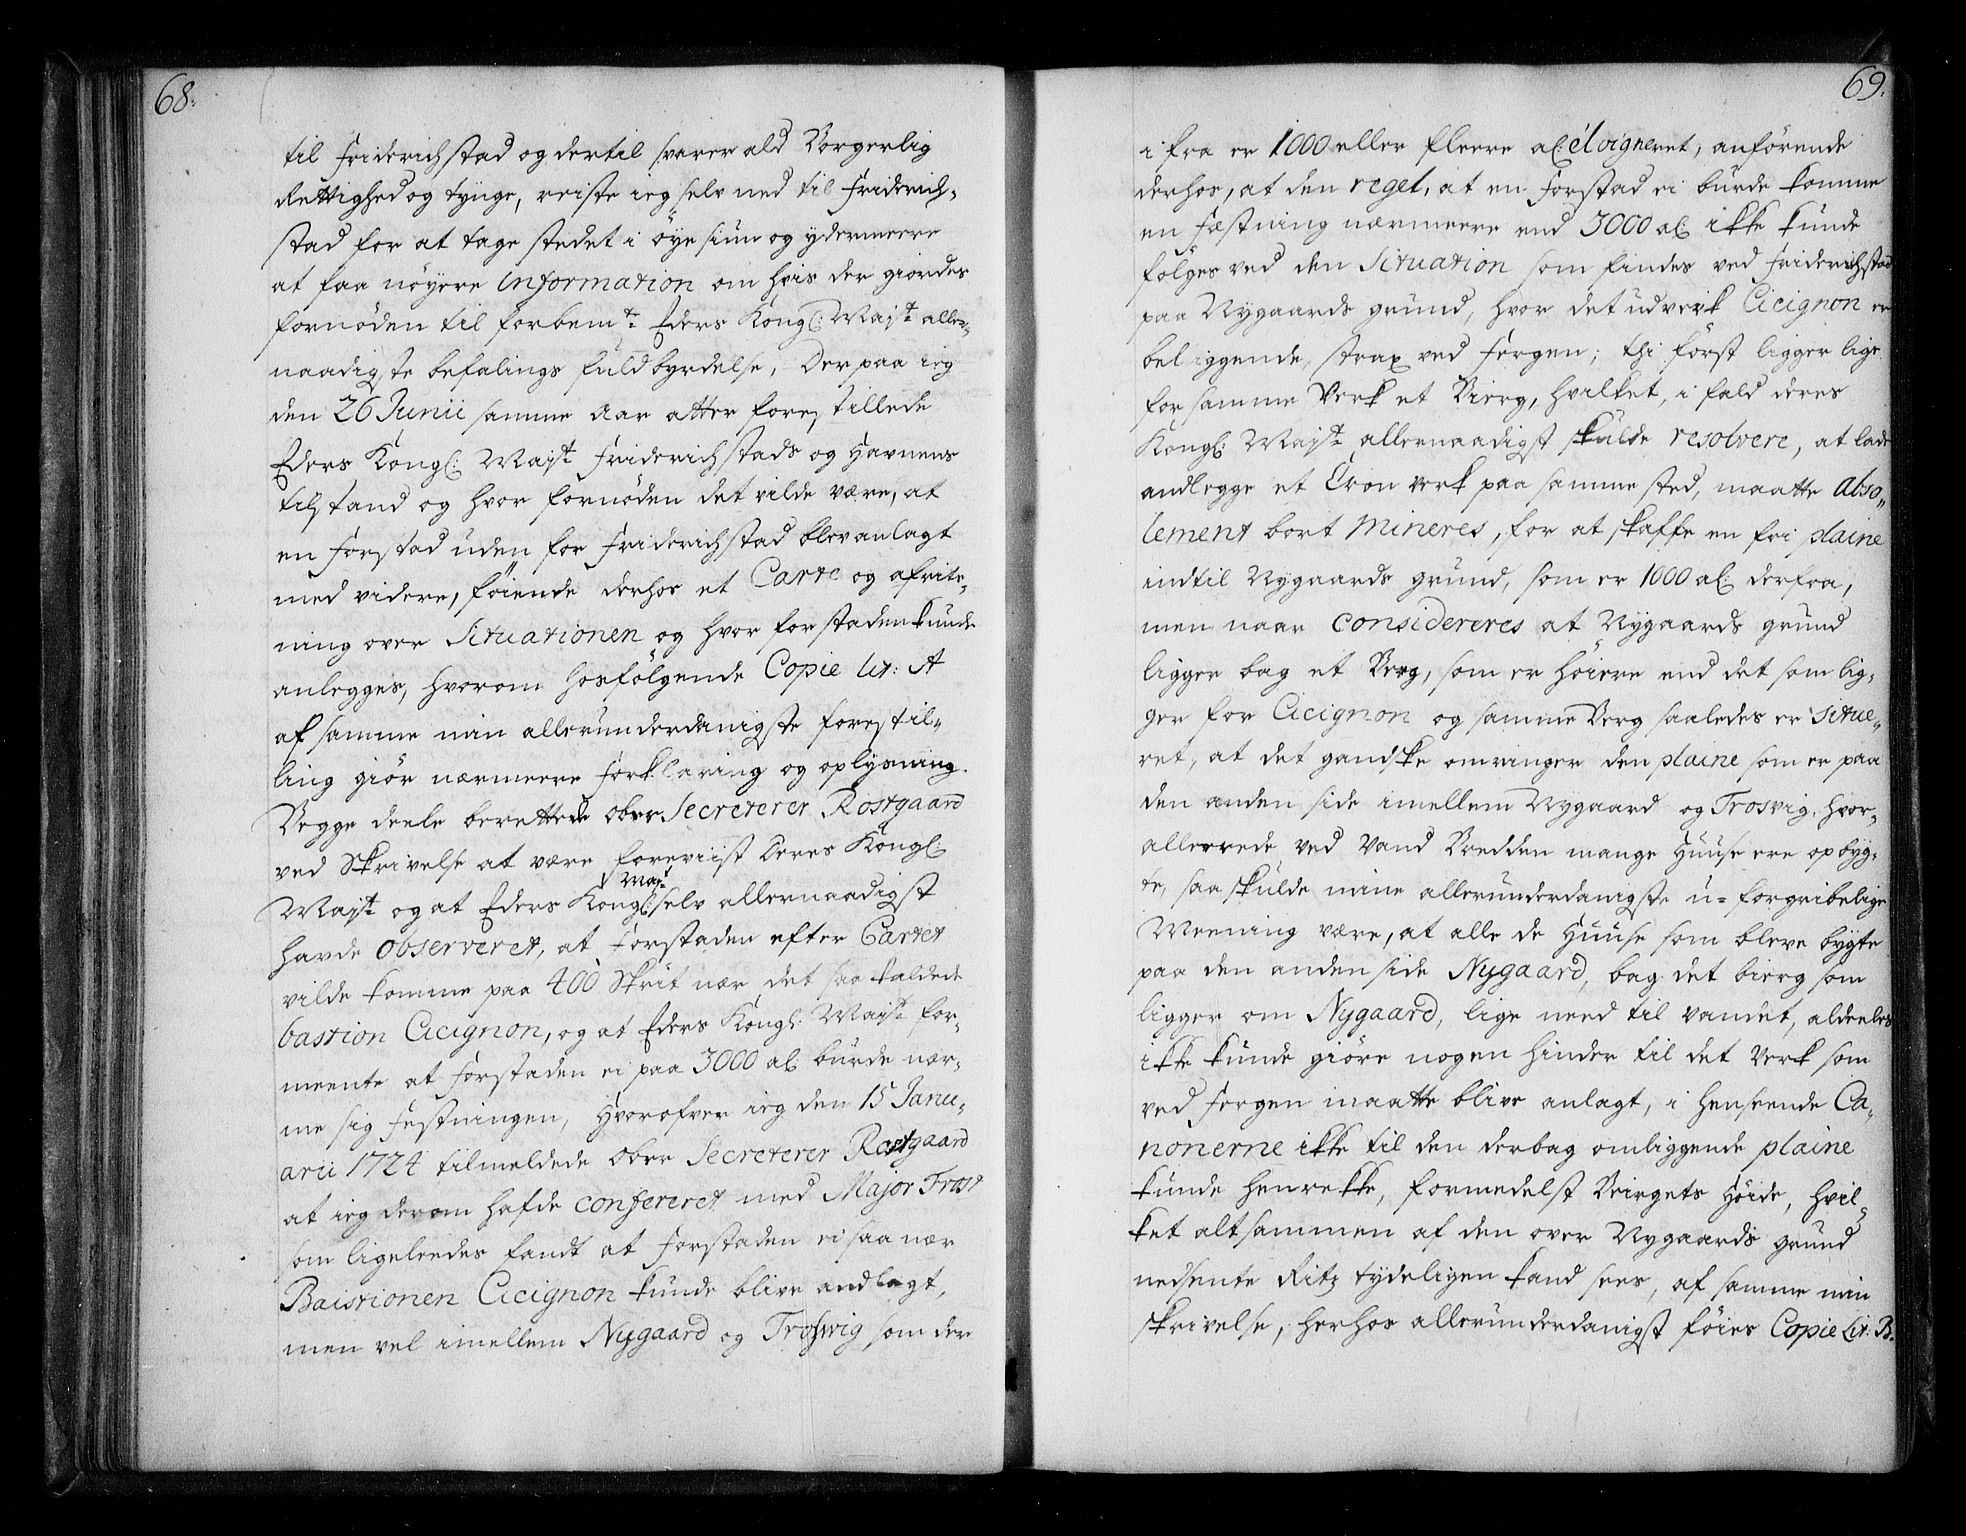 68.
til Friderichstad og dertil svarer ald Borgerlig
Rettighed og tynge, reiste ieg selv ned til Friderich„
stad for at tage stedet i øye siun og ydermeere
at faa nøyere Information om hvis der giordes
fornøden til forbemte Eders Kongl: Mayts aller„
naadigste befalings fuldbyrdelse, Der paa ieg
den 26 Junii samme Aar atter forestillede
Eders Kongl: Mayt Friderichstads og Havnens
tilstand og hvor fornøden det vilde være, at
en Forstad uden for Friderichstad blev anlagt
med videre, føiende derhos et Carte og afrits„
ning over Situationen og hvor forstaden kunde
anlegges, hvorom hosfølgende Copie Lit: A
af samme min allerunderdanigste forestil„
ling giør nærmeere forklaring og oplysning.
Begge deele berettede ober Secreterer Rostgaard
ved Skrivelse at være foreviist Deres Kongl:
Mayt og at Eders Kongl: Mayt selv allernaadigst
havde observeret, at Forstaden efter Cartet
vilde komme paa 400 Skrit nær det saa kaldede
bastion Cicignon, og at Eders Kongl: Mayt for„
meente at Forstaden ei paa 3000 al burde nær„
me sig Festningen, Hvorofver ieg den 15 Janu„
arii 1724 tilmeldede ober Secreterer Rostgaard
at ieg derom hafde confereret med Major Trost
som ligeleedes fandt at Forstaden ei saa nær
Baistionen Cicignon kunde blive andlagt,
men vel imellem Nygaard og Troswig, som der
69.
i fra er 1000 eller fleere al: eloigneret, anførende
derhos, at den regel, at en Forstad ei burde komme
en Fæstning nærmeere end 3000 al: ikke kunde
følges ved den Situation som findes ved Friderichstad
paa Nygaards grund, hvor det udverk Cicignon er
beliggende, strax ved Fergen; thi først ligger lige
for samme Verk et Bierg, hvilket, i fald deres
Kongl: Mayt allernaadigst skulde resolvere, at lade
andlegge et Cron verk paa samme sted, maatte abso„
lement bort mineres, for at skaffe en fri plaine
indtil Nygaards grund, som er 1000 al: derfra,
men naar considereres at Nygaards grund
ligger bag et Berg, som er høiere end det som lig„
ger for Cicignon og samme Berg saaledes er situe„
ret, at det gandske omringer den plaine som er paa
den anden side imellem Nygaard og Trosvig, hvor„
allerrede ved Vand Bredden mange Huuse ere opbyg„
te, saa skulde mine allerunderdanigste u=forgribelige
Meening være, at alle de Huuse som bleve bygte
paa den anden side Nygaard, bag det bierg som
ligger om Nygaard, lige need til Vandet, aldeeles
ikke kunde giøre nogen hinder til det Verk som
ved Fergen maatte blive anlagt, i henseende Ca„
nonerne ikke til den derbag omliggende plaine
kunde henrekke, formedelst Beirgets Høide, hvil„
ket altsammen af den over Nygaards grund
nedsente Ritz tydeligen kand sees, af samme min
skrivelse, herhos allerunderdanigst føies Copie Lit: B.